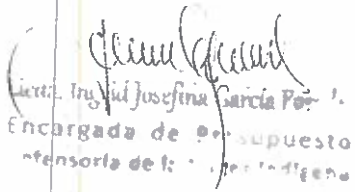 Licda. Ingrid Josefina García
Encargada de Presupuesto
Defensoría de la Indígena